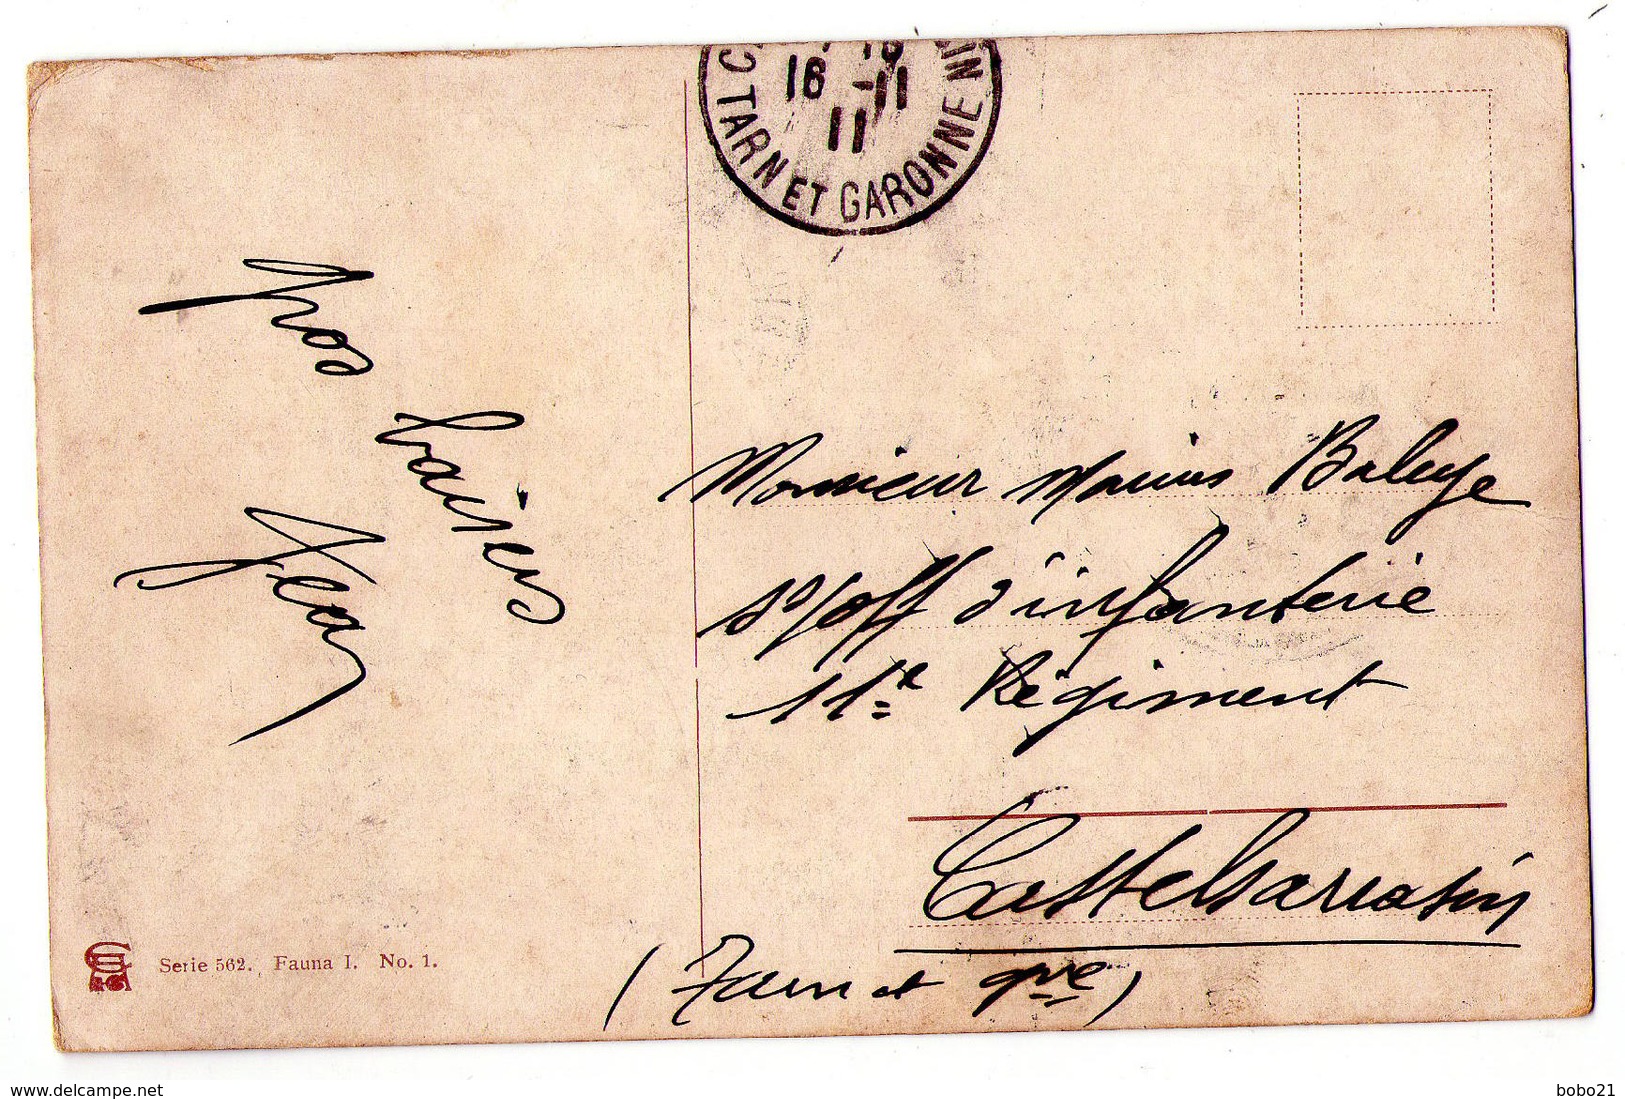 16 -11
11
TARN ET GARONNE
Gros
baisers
Jean
Monsieur Marius Baluye
s/off d'infanterie
11e Régiment
Castelsarrasin
(Tarn et gne)
Serie 562. Fauna I. No. 1.
www.delcampe.net
bobo21